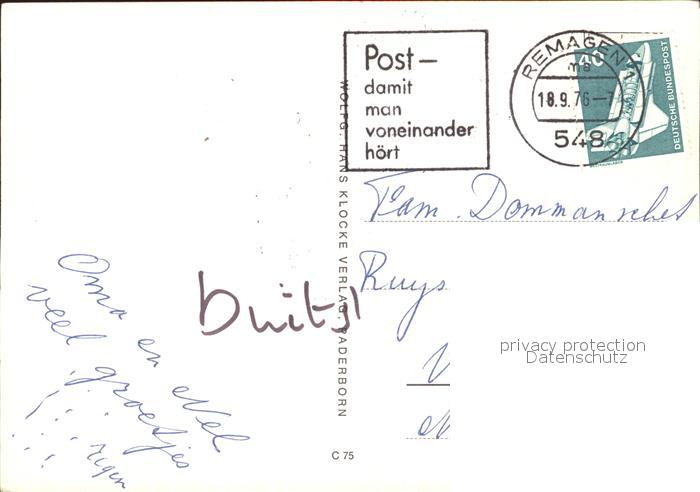 Post—
damit
man
voneinander
hört
REMAGEN 1
18.9.76-7
548
40
DEUTSCHE BUNDESPOST
WOLFG. HANS KLOCKE VERLAG, PADERBORN
Fam. Dommanschet
Ruys
privacy protection
Datenschutz
Oma en Nel
veel groetjes
Duitsl
C 75